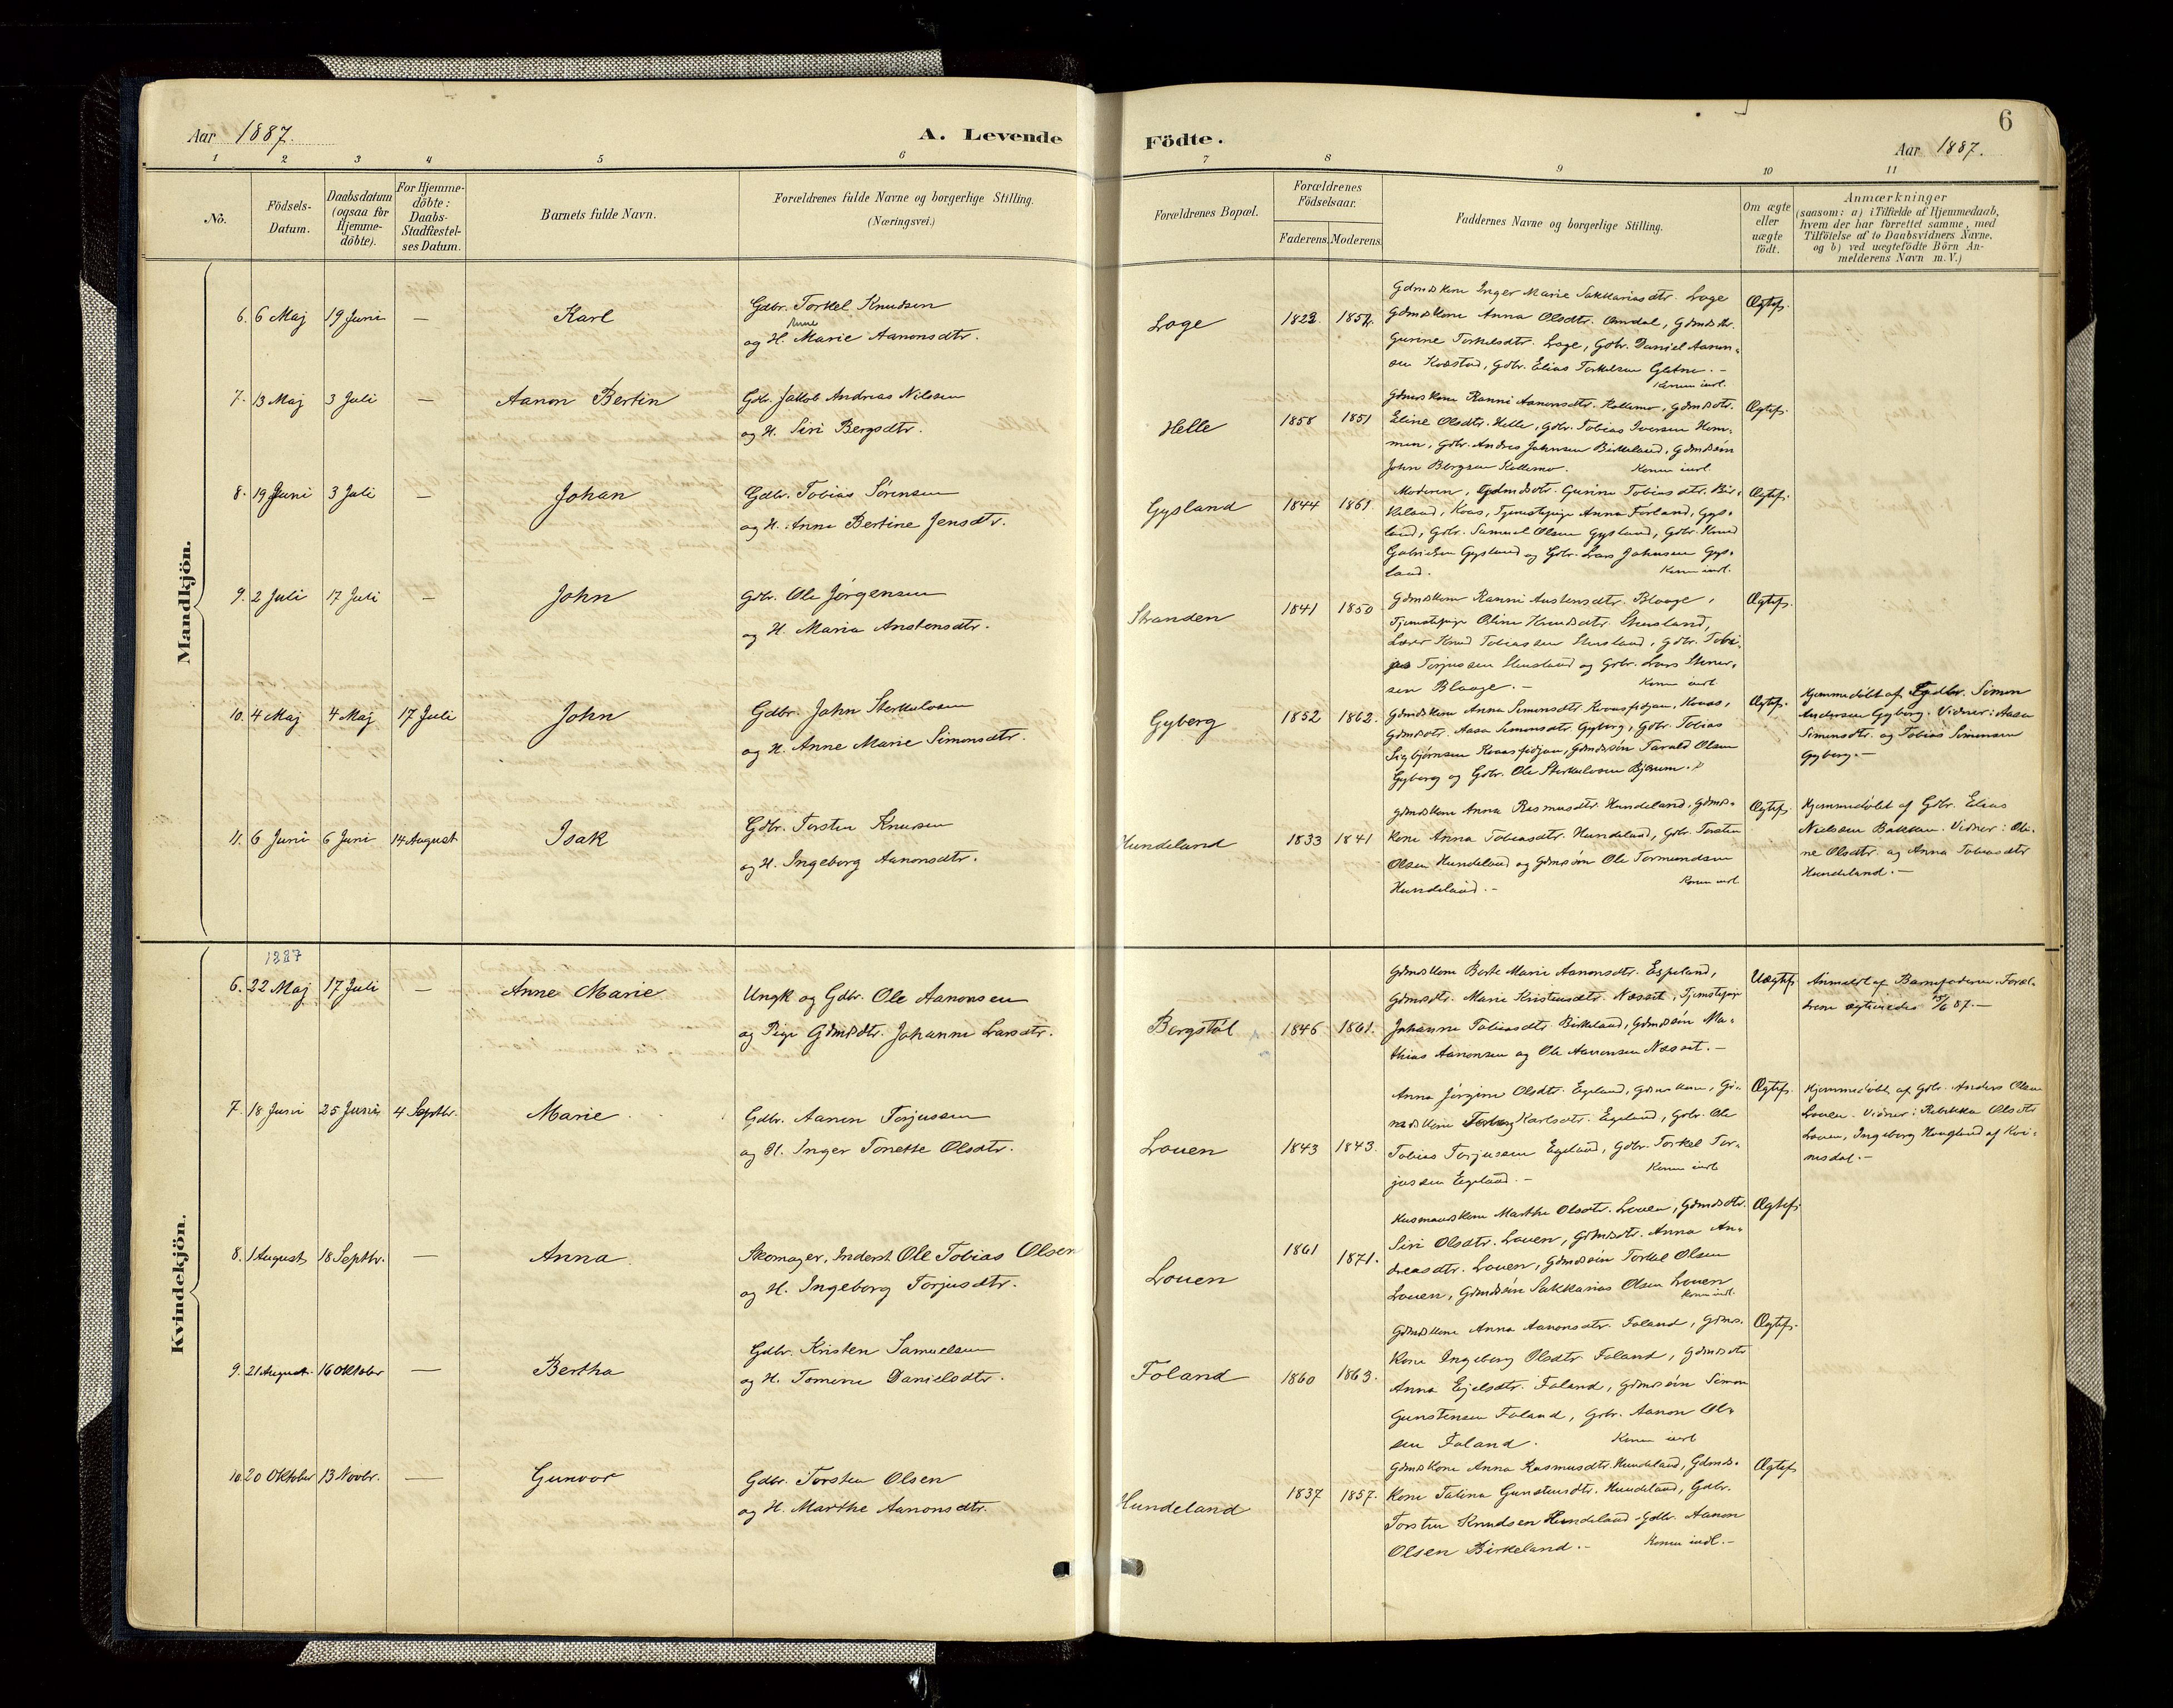 6
Aar 1887.
A. Levende
Födte.
Aar 1887.
1 2 3 4 5 6 7 8 9 10 11
No.
Födsels-
Datum.
Daabsdatum
(ogsaa for
Hjemme-
döbte).
For Hjemme-
döbte:
Daabs-
Stadfæstel-
ses Datum.
Barnets fulde Navn.
Forældrenes fulde Navne og borgerlige Stilling.
(Næringsvei.)
Forældrenes Bopæl.
Forældrenes
Födselsaar.
Faderens. Moderens.
Faddernes Navne og borgerlige Stilling.
Om ægte
eller
uægte
födt.
Anmærkninger
(saasom: a) i Tilfælde af Hjemmedaab,
hvem der har forrettet samme, med
Tilföielse af to Daabsvidners Navne,
og b) ved uægtefödte Börn An-
melderens Navn m. V.)
Mandkjön.
6. 6 Maj 19 Juni — Karl
Gdbr. Torkel Knudsen
Anne
og H. Marie Aanonsdtr.
Loge 1822 1852.
Gdmdskone Inger Marie Sakkariasdtr. Loge
Gdmdskone Anna Olsdtr. Omdal, Gdmdsdtr.
Gurine Torkelsdtr. Loge, Gdbr. Daniel Aanon-
sen Kvæstad, Gdbr. Elias Torkelsen Gletne. -
Konen indl.
Ægtef.
7. 13 Maj 3 Juli — Aanon Bertin
Gdbr. Jakob Andreas Nilssen
og H. Siri Bergsdtr.
Helle 1858 1851
Gdmdskone Ranni Aanonsdtr. Kollemo, Gdmdsdtr.
Eline Olsdtr. Helle, Gdbr. Tobias Iversen Hom-
men, Gdbr. Andres Johnsen Birkeland, Gdmdssön
John Bergsen Kollemo. Konen indl.
Ægtef.
8. 19 Juni 3 Juli — Johan
Gdbr. Tobias Sørensen
og H. Anna Bertine Jensdtr.
Gysland 1844 1861
Moderen, Gdmdsdtr. Gurine Tobiasdtr. Bir-
keland, Kvas, Tjenestepige Anna Forland, Gys-
land, Gdbr. Samuel Olsen Gysland, Gdbr. Knud
Gabrielsen Gysland og Gdbr. Lars Johnsen Gys-
land. Konen indl.
Ægtef.
9. 2 Juli 17 Juli — John
Gdbr. Ole Jörgensen
og H. Maria Anstensdtr.
Stranden 1841 1850
Gdmdskone Ranni Austensdtr. Blaage,
Tjenestepige Oline Knudsdtr. Stusland,
Lærer Knud Tobiassen Stusland, Gdbr. Tobi-
jas Torjussen Stusland og Gdbr. Lars Stener-
sen Blaage. — Konen indl.
Ægtef.
10. 4 Maj 4 Maj 17 Juli John
Gdbr. John Sterkulvsen
og H. Anne Marie Simonsdtr.
Gyberg 1852 1862.
Gdmdskone Anna Simonsdtr. Kvaasfidjan, Kvaas,
Gdmdsdtr. Aasa Simonsdtr. Gyberg, Gdbr. Tobias
Sigbjørnsen Kvaasfidjan, Gdmdssön Tarald Olsen
Gyberg og Gdbr. Ole Sterkulvsen Bjærum.
Ægtef.
Hjemmedöbt af Gdbr. Simon
Andersen Gyberg. Vidner: Aasa
Simonsdtr. og Tobias Simonsen
Gyberg. —
11. 6 Juni 6 Juni 14 August Isak
Gdbr. Torsten Knudsen
og H. Ingeborg Aanonsdtr.
Hundeland 1833 1841
Gdmdskone Anna Rasmusdtr. Hundeland, Gdmds-
kone Anna Tobiasdtr. Hundeland, Gdbr. Torsten
Olsen Hundeland og Gdmdssön Ole Tormundsen
Hundeland. — Konen indl.
Ægtef.
Hjemmedöbt af Gdbr. Elias
Nielssen Bakken. Vidner: Oli-
ne Olsdtr. og Anna Tobiasdtr
Hundeland. —
Kvindekjön.
1887
6. 22 Maj 17 Juli — Anne Marie
Ungk og Gdbr. Ole Aanonsen
og Pige Gdmdsdtr. Johanne Larsdtr.
Bergstöl 1846 1861.
Gdmdskone Berte Marie Aanonsdtr. Espeland,
Gdmdsdtr. Marie Kristensdtr. Næset, Tjenestepige
Johanne Tobiasdtr. Birkeland, Gdmdssön Ma-
thias Aanonsen og Ole Aanonsen Næset. —
Uægtef.
Anmeldt af Barnefaderen. Foræl-
drene ægteviedes /6 87. —
7. 18 Juni 25 Juni 4 Septbr. Marie
Gdbr. Aanen Torjussen
og H. Inger Tonette Olsdtr.
Louen 1843 1843.
Anna Jörgine Olsdtr. Egeland,
Karlsdtr. Egeland, Gdbr. Ole
Tobias Torjussen Egeland, Gdbr. Torkel Tor-
jussen Egeland. — Konen indl
Ægtef.
Hjemmedöbt af Gdbr. Anders Olsen
Louen. Vidner: Rebekka Olsdtr
Louen, Ingeborg Haugland af Kvi-
nesdal. —
8. 1 August 18 Septbr. — Anna
Skomager, Inderst Ole Tobias Olsen
og H. Ingeborg Torjusdtr.
Louen 1861 1871.
Husmandskone Marthe Olsdtr. Louen, Gdmdsdtr.
Siri Olsdtr. Louen, Gdmdsdtr. Anna An-
dreasdtr. Louen, Gdmdssön Torkel Olsen
Louen, Gdmdssön Sakkarias Olsen Louen
Konen indl.
Ægtef.
9. 21 August 16 Oktober — Bertha
Gdbr. Kristen Samuelsen
og H. Tomine Danielsdtr.
Foland 1860 1863.
Gdmdskone Anna Aanonsdtr. Foland, Gdmds-
kone Ingeborg Olsdtr. Foland, Gdmdsdtr
Anna Ejelsdtr. Foland, Gdmdssön Simon
Gunstensen Foland, Gdbr. Aanon Ol-
sen Foland. Konen indl
Ægtef.
10. 20 Oktober 13 Novbr. — Gunvor
Gdbr. Torsten Olsen
og H. Marthe Aanonsdtr.
Hundeland 1837 1857.
Gdmdskone Anna Rasmusdtr. Hundeland, Gdmds-
kone Talina Gunstensdtr. Hundeland, Gdbr.
Torsten Knudsen Hundeland. Gdbr. Aanon
Olsen Birkeland. — Konen indl. —
Ægtef.